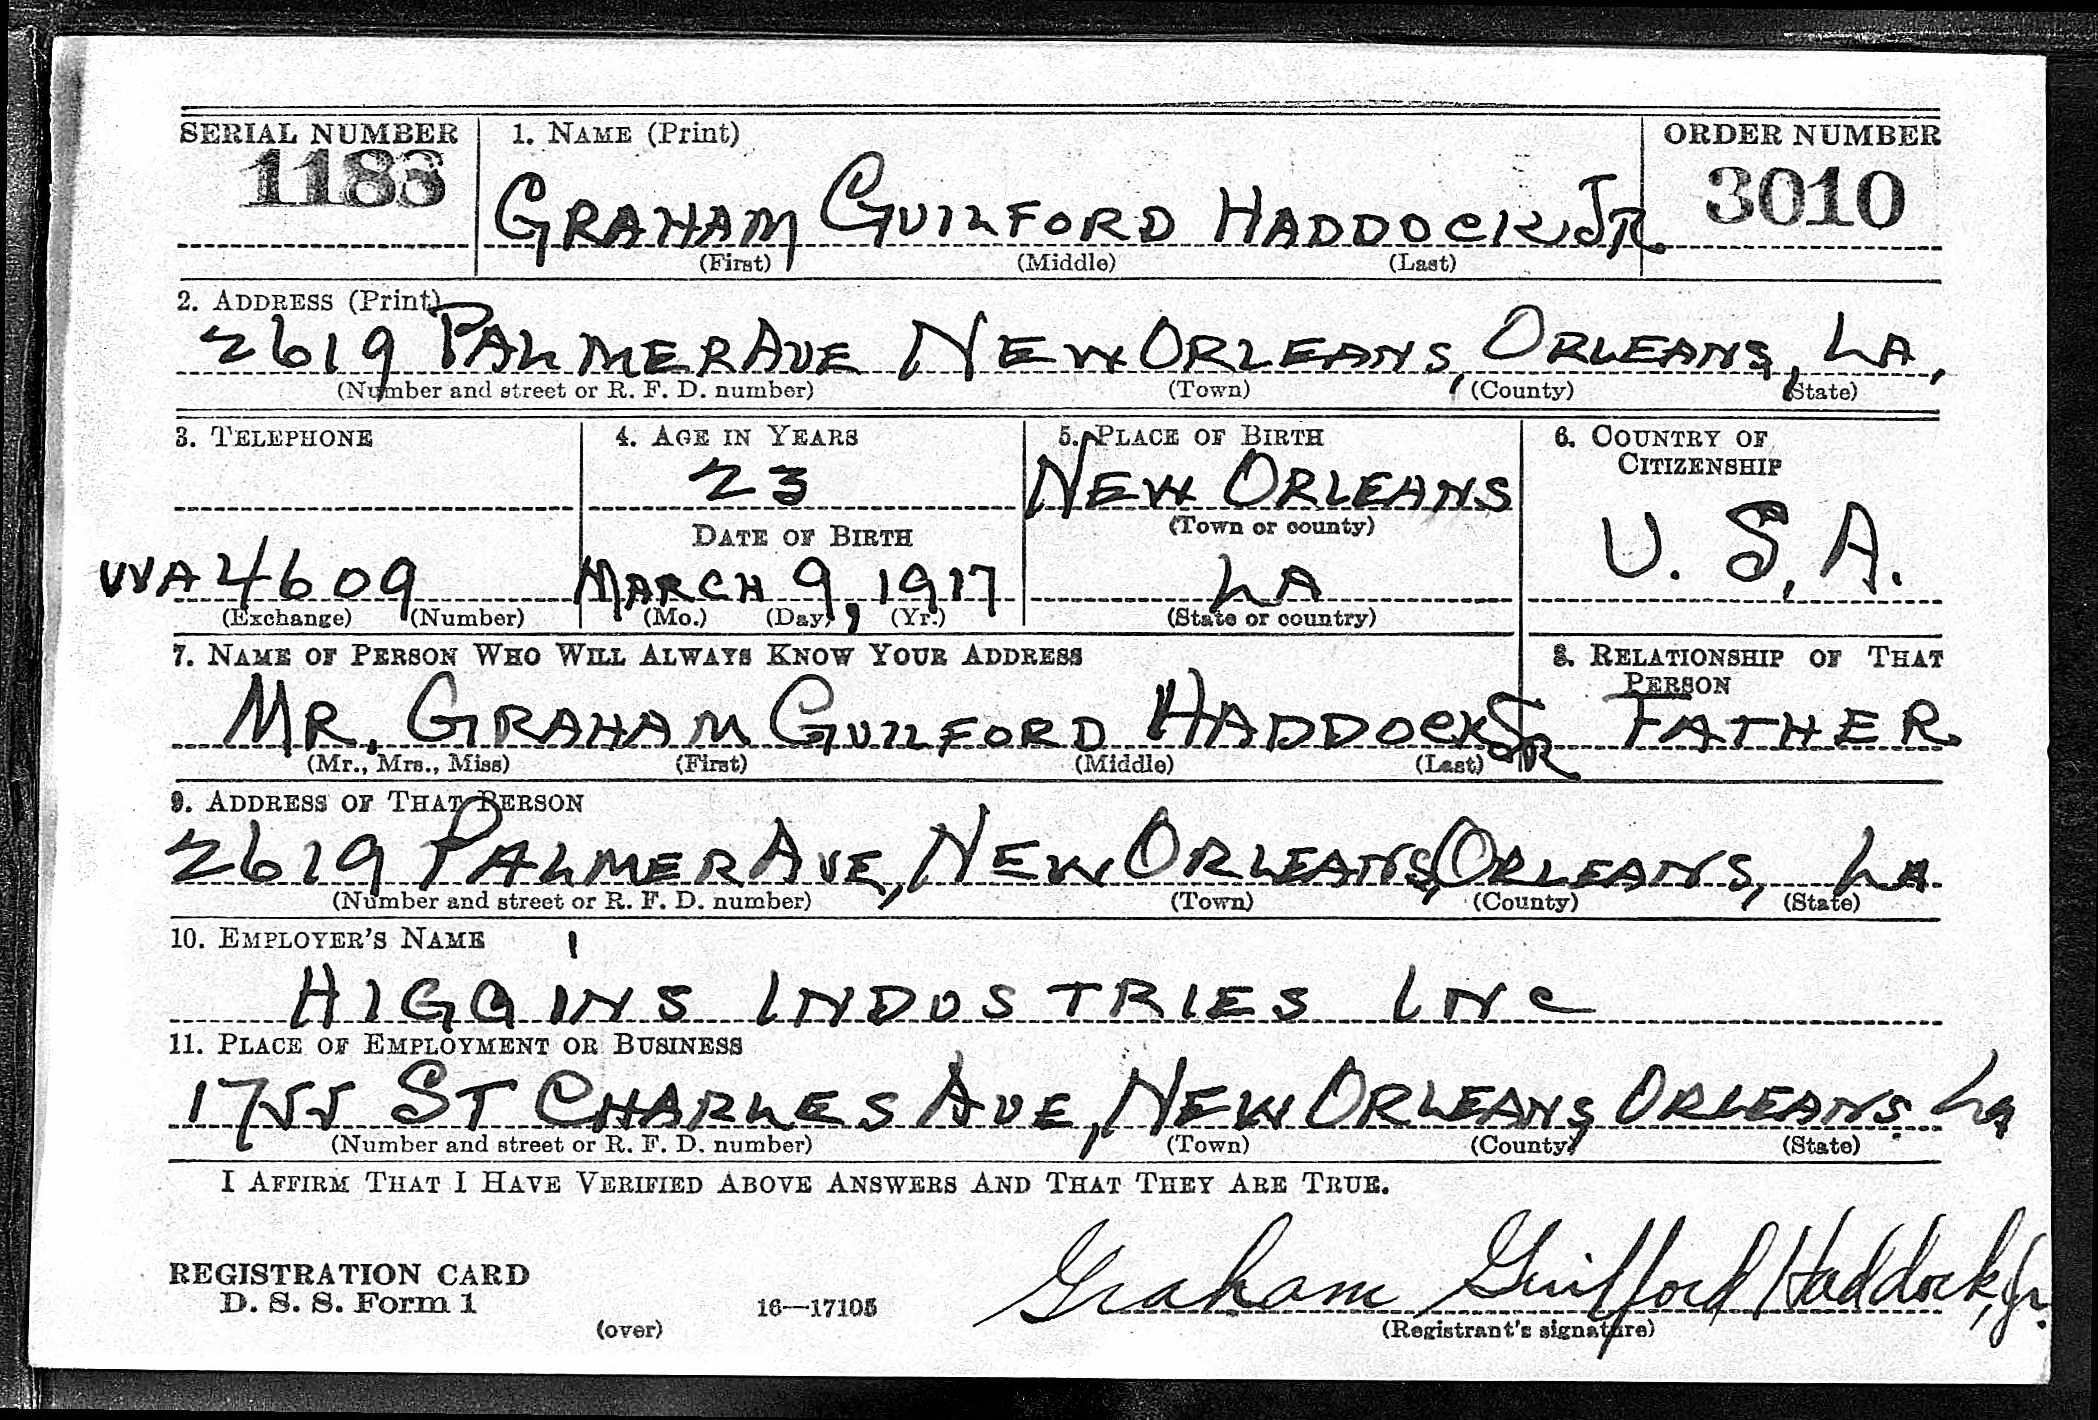 SERIAL NUMBER 1. NAME (Print) ORDER NUMBER
1188 GRAHAM GUILFORD HADDOCK JR. 3010
(First) (Middle) (Last)
2. ADDRESS (Print)
2619 PALMER AVE NEW ORLEANS, ORLEANS, LA,
(Number and street or R. F. D. number) (Town) (County) (State)
3. TELEPHONE 4. AGE IN YEARS 5. PLACE OF BIRTH 6. COUNTRY OF
CITIZENSHIP
23 NEW ORLEANS
DATE OF BIRTH (Town or county) U. S. A.
WA 4609 MARCH 9, 1917 LA
(Exchange) (Number) (Mo.) (Day) (Yr.) (State or country)
7. NAME OF PERSON WHO WILL ALWAYS KNOW YOUR ADDRESS 8. RELATIONSHIP OF THAT
PERSON
MR. GRAHAM GUILFORD HADDOCK SR FATHER
(Mr., Mrs., Miss) (First) (Middle) (Last)
9. ADDRESS OF THAT PERSON
2619 PALMER AVE, NEW ORLEANS, ORLEANS, LA
(Number and street or R. F. D. number) (Town) (County) (State)
10. EMPLOYER'S NAME
HIGGINS INDUSTRIES INC
11. PLACE OF EMPLOYMENT OR BUSINESS
1755 ST CHARLES AVE, NEW ORLEANS, ORLEANS. La
(Number and street or R. F. D. number) (Town) (County) (State)
I AFFIRM THAT I HAVE VERIFIED ABOVE ANSWERS AND THAT THEY ARE TRUE.
REGISTRATION CARD
D. S. S. Form 1 16—17105 Graham Guilford Haddock, Jr.
(over) (Registrant's signature)